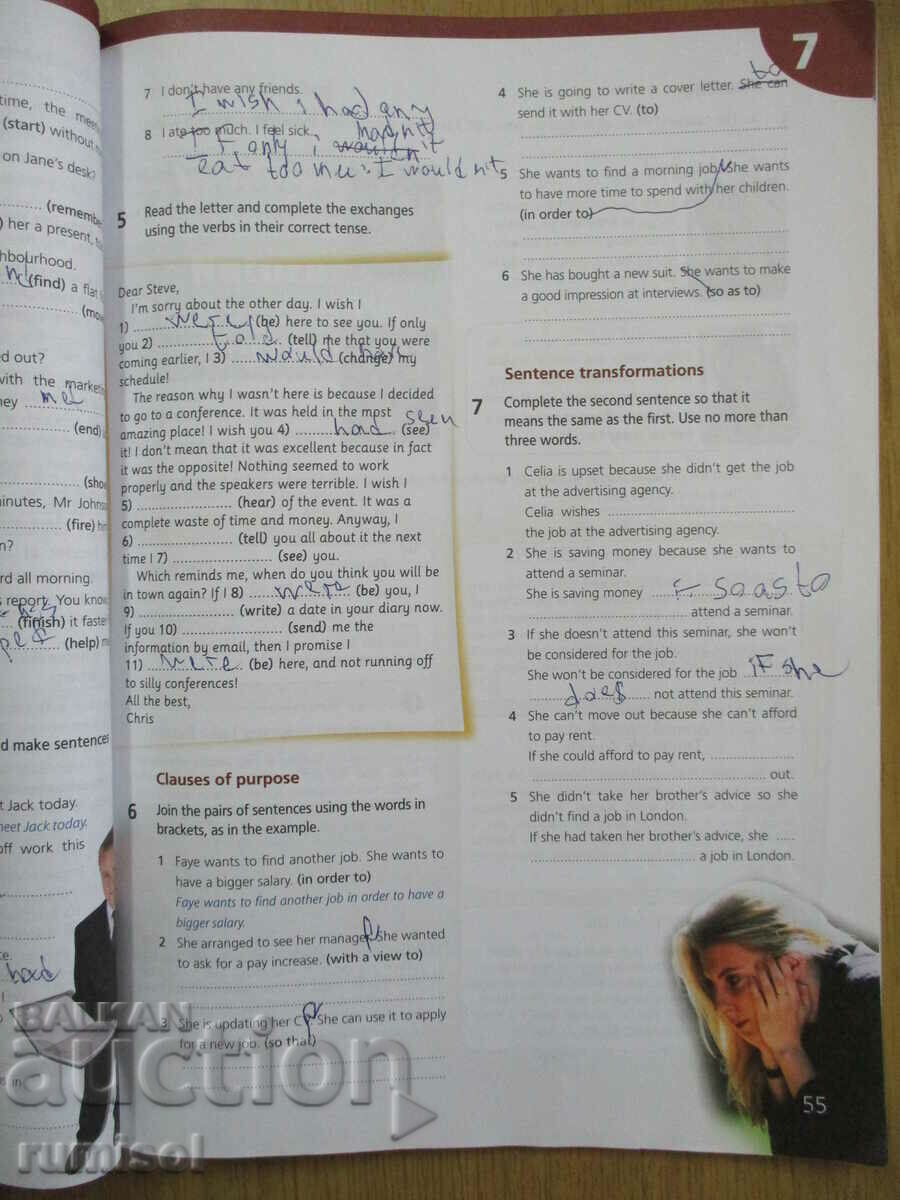 7
time, the
(start) without
on Jane's desk?
her a present,
hbourhood.
(find) a flat
ed out?
with the
ney me
(end)
inutes, Mr
(fire)
n?
rd all morning.
s report. You
(finish) it
(help)
d make sentences
t Jack today.
meet Jack today.
off work this
had
7 I don't have any friends.
I wish I had any
8 I ate too much. I feel sick.
If only I wouldn't hadn't
eat too I wouldn't
5 Read the letter and complete the exchanges
using the verbs in their correct tense.
Dear Steve,
I'm sorry about the other day. I wish I
1) were (be) here to see you. If only
you 2) told (tell) me that you were
coming earlier, I 3) would (change) my
schedule!
The reason why I wasn't here is because I decided
to go to a conference. It was held in the most
amazing place! I wish you 4) had seen (see)
it! I don't mean that it was excellent because in fact
it was the opposite! Nothing seemed to work
properly and the speakers were terrible. I wish I
5) (hear) of the event. It was a
complete waste of time and money. Anyway, I
6) (tell) you all about it the next
time I 7) (see) you.
Which reminds me, when do you think you will be
in town again? If I 8) were (be) you, I
9) (write) a date in your diary now.
If you 10) (send) me the
information by email, then I promise I
11) were (be) here, and not running off
to silly conferences!
All the best,
Chris
Clauses of purpose
6 Join the pairs of sentences using the words in
brackets, as in the example.
1 Faye wants to find another job. She wants to
have a bigger salary. (in order to)
Faye wants to find another job in order to have a
bigger salary.
2 She arranged to see her manager. She wanted
to ask for a pay increase. (with a view to)
3 She is updating her CV. She can use it to apply
for a new job. (so that)
to
4 She is going to write a cover letter. She can
send it with her CV. (to)
5 She wants to find a morning job. She wants
to have more time to spend with her children.
(in order to)
6 She has bought a new suit. She wants to make
a good impression at interviews. (so as to)
Sentence transformations
7 Complete the second sentence so that it
means the same as the first. Use no more than
three words.
1 Celia is upset because she didn't get the job
at the advertising agency.
Celia wishes
the job at the advertising agency.
2 She is saving money because she wants to
attend a seminar.
She is saving money so as to
attend a seminar.
3 If she doesn't attend this seminar, she won't
be considered for the job.
She won't be considered for the job if she
does not attend this seminar.
4 She can't move out because she can't afford
to pay rent.
If she could afford to pay rent,
out.
5 She didn't take her brother's advice so she
didn't find a job in London.
If she had taken her brother's advice, she
a job in London.
55
BALKAN
auction
rumisol